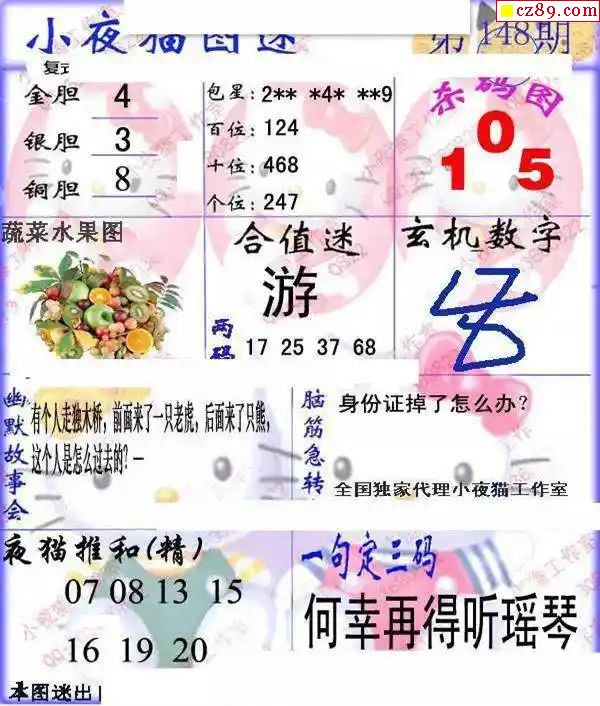 cz89.com
小夜猫图迷
第148期
复式
金胆 4
银胆 3
铜胆 8
包星：2** *4* **9
百位：124
十位：468
个位：247
东码图
105
蔬菜水果图
合值谜
游
两码
17 25 37 68
玄机数字
幽默故事会
有个人走独木桥，前面来了一只老虎，后面来了只熊，
这个人是怎么过去的？—
脑筋急转
身份证掉了怎么办？
全国独家代理小夜猫工作室
夜猫推和(精)
07 08 13 15
16 19 20
一句定三码
何幸再得听瑶琴
本图迷出